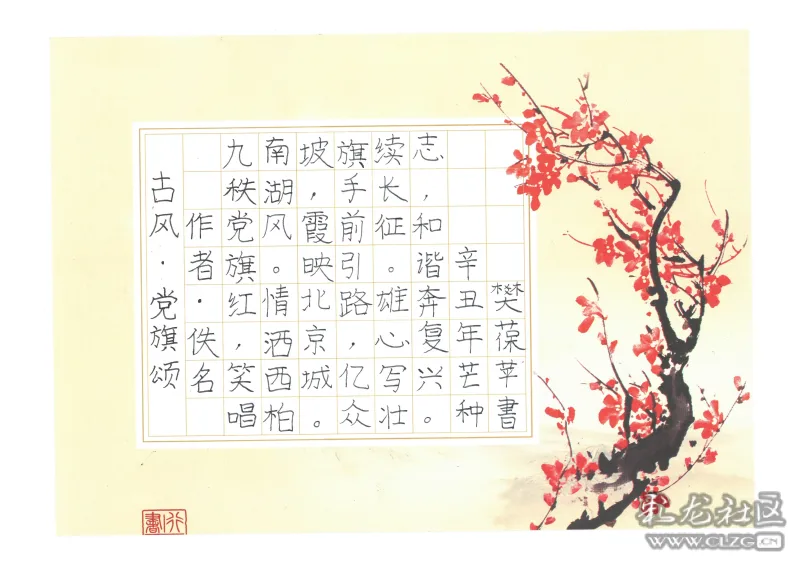 古风·党旗颂
作者·佚名
九秩党旗红,笑唱
南湖风。情洒西柏
坡,霞映北京城。
旗手前引路,亿众
续长征。雄心写壮
志,和谐奔复兴。
辛丑年芒种
樊葆苹書
彩龙社区
WWW.CLZG.CN